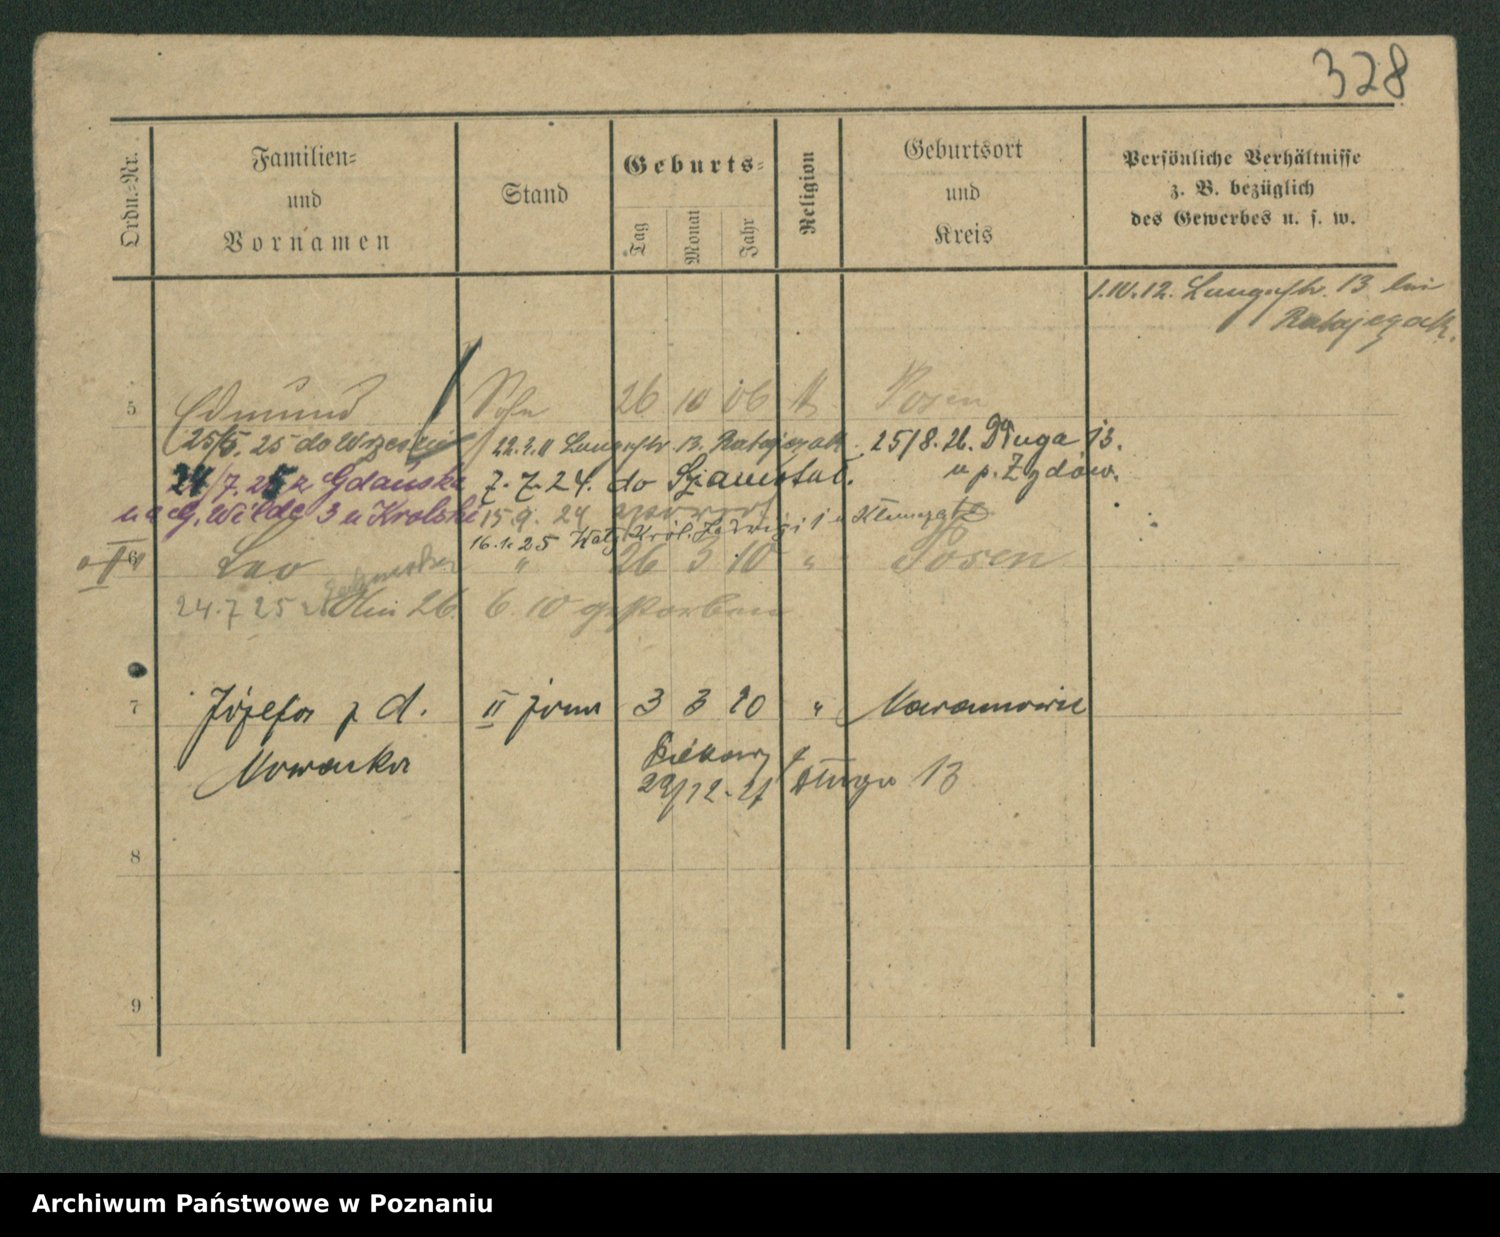 328
Ordn.-Nr.
Familien-
und
Vornamen
Stand
Geburts-
Tag
Monat
Jahr
Religion
Geburtsort
und
Kreis
Persönliche Verhältnisse
z. B. bezüglich
des Gewerbes u. s. w.
1.IV.12. Langestr. 13 bei
Ratajczak.
5 Edmund Sohn 26 10 06 Posen
25/5. 25 do Wrześni 22.2.11 Langestr. 13. Ratajczak. 25/8.26. Długa 13.
24/7.25 z Gdańska 7.7.24. do Szamotuł. u p. Żydów.
na G. Wilde 3 u Krolski 15.9. 24 powrót
16.1.25 Król. Jadwigi 1 u
6 Leo " 26 3 10 " Posen
24.7 25 26 6. 10 gestorben
7 Józefa z d. II żona 3 3 20 "
Nowacka
29/12.27 Długa 13
8
9
Archiwum Państwowe w Poznaniu